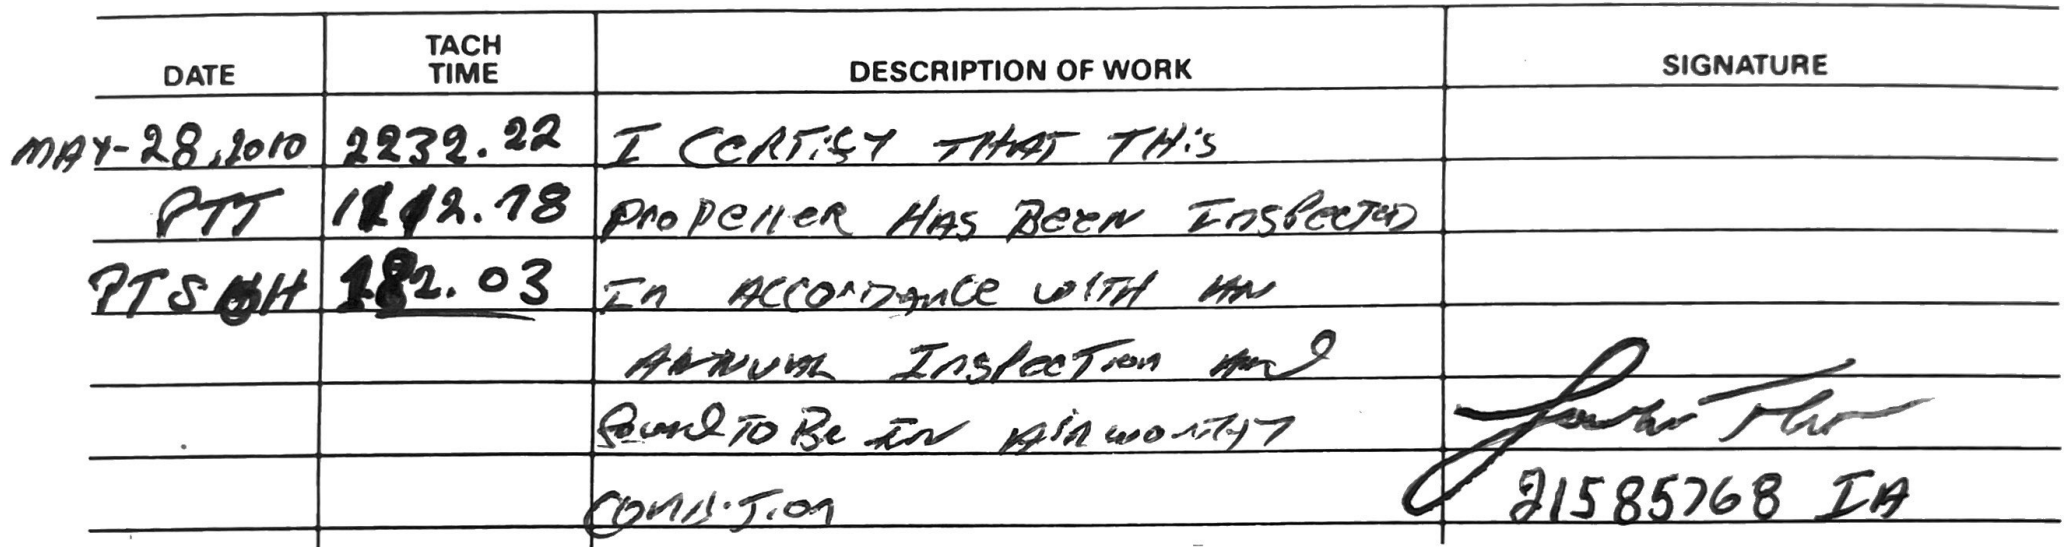 DATE TACH TIME DESCRIPTION OF WORK SIGNATURE
MAY-28,2010 2232.22 I CERTIFY THAT THIS
PTT PROPELLER HAS BEEN INSPECTED
.03 IN ACCORDANCE WITH AN
ANNUAL INSPECTION AND
FOUND TO BE IN AIRWORTHY
CONDITION 21585768 IA